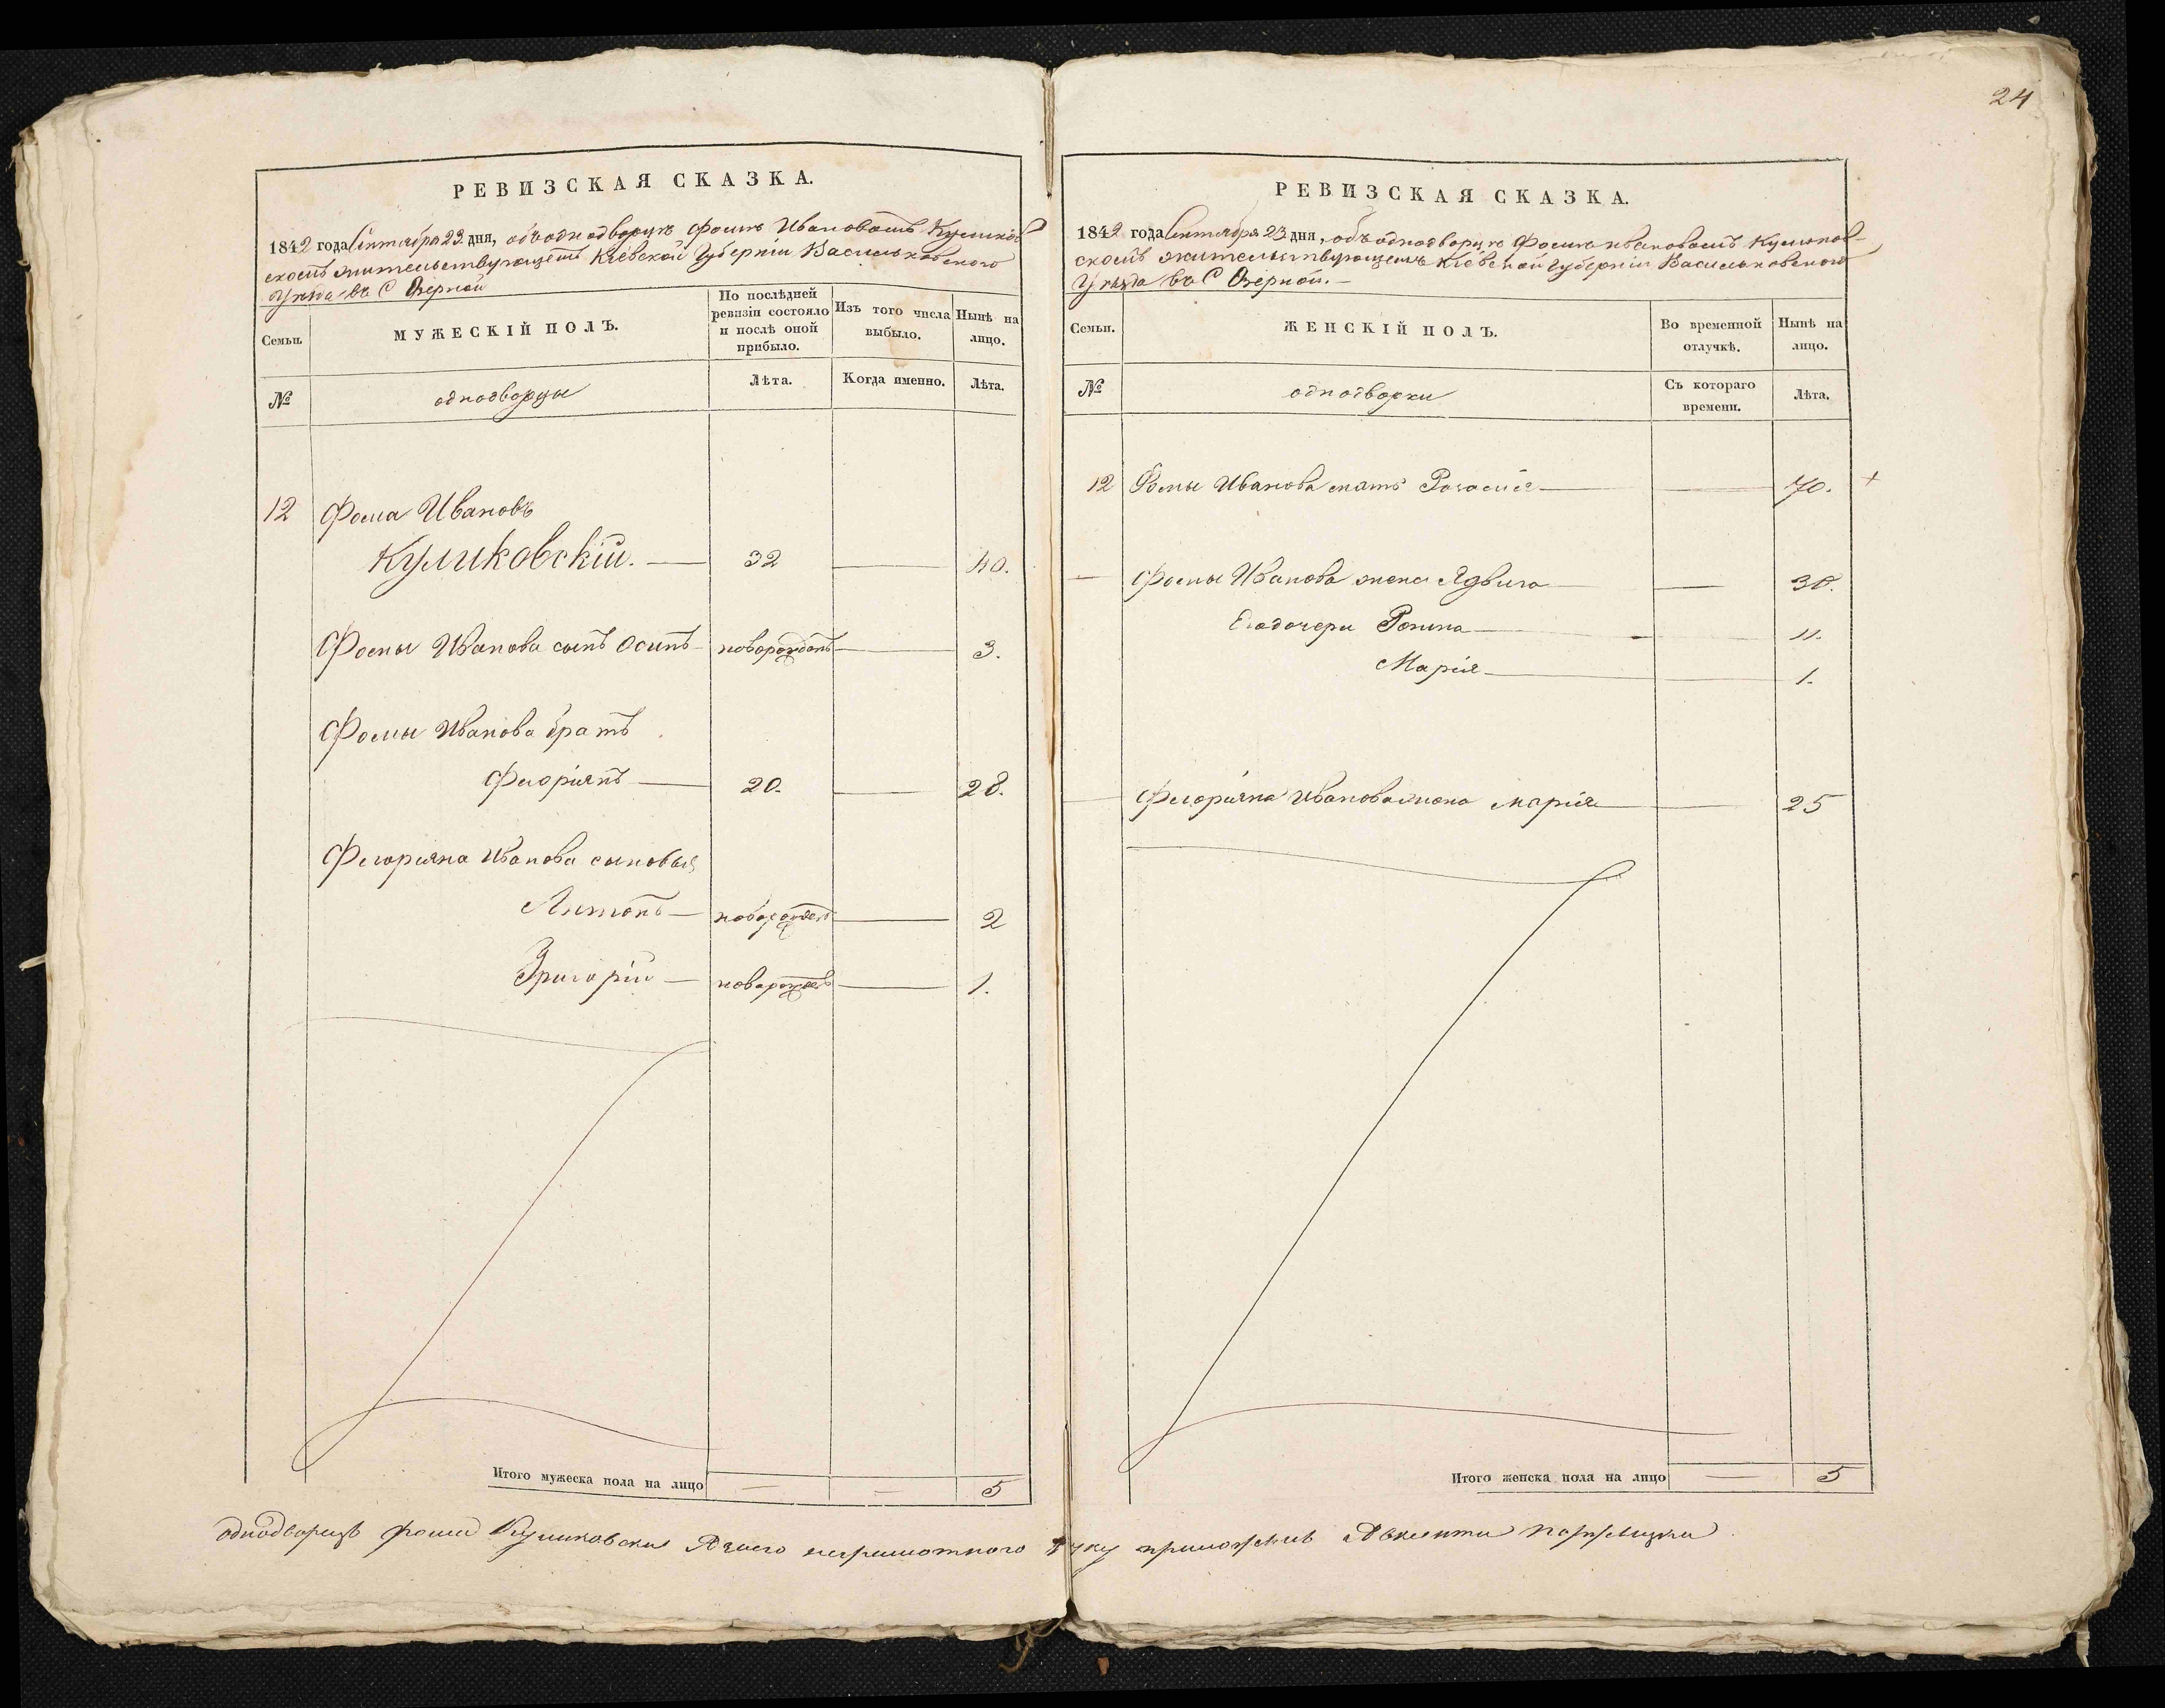 24
РЕВИЗСКАЯ СКАЗКА.
1842 года Сентября 23 дня, объ однодворцѣ Фомѣ Ивановомъ Куликов
скомъ жительствующемъ Кіевской Губерніи Васильковскаго
Уѣзда въ С Озерной
Семьи.
МУЖЕСКІЙ ПОЛЪ.
По послѣдней ревизіи состояло и послѣ оной прибыло.
Изъ того числа выбыло.
Нынѣ на лицо.
№
однодворцы
Лѣта.
Когда именно.
Лѣта.
12 Фома Ивановъ
Куликовскій. — 32 — 40.
Фомы Иванова сынъ Осипъ — новорожденъ — 3.
Фомы Иванова братъ
Флоріянъ — 20. — 28.
Флоріяна Иванова сыновья
Антонъ — новорожденъ — 2
Григорій — новорожденъ — 1.
Итого мужеска пола на лицо — — 5
РЕВИЗСКАЯ СКАЗКА.
1842 года Сентября 23 дня, объ однодворцѣ Фомѣ Ивановомъ Куликов-
скомъ жительствующемъ Кіевской Губерніи Васильковскаго
Уѣзда въ С Озерной. —
Семьи.
ЖЕНСКІЙ ПОЛЪ.
Во временной отлучкѣ.
Нынѣ на лицо.
№
однодворки
Съ котораго времени.
Лѣта.
12 Фомы Иванова мать — — 70. +
— Фомы Иванова жена Ядвига — — 30.
Его дочери — — 11.
Марія — — 1.
— Флоріяна Иванова жена Марія — — 25
Итого женска пола на лицо — 5
однодворецъ Фома Куликовски А за него неграмотного руку приложилъ